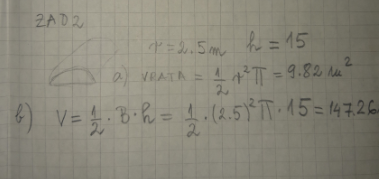 ZAD2
r = 2.5m h = 15
a) VRATA = 1/2 r²π = 9.82 m²
b) V = 1/2 · B · h = 1/2 · (2.5)²π · 15 = 147.26